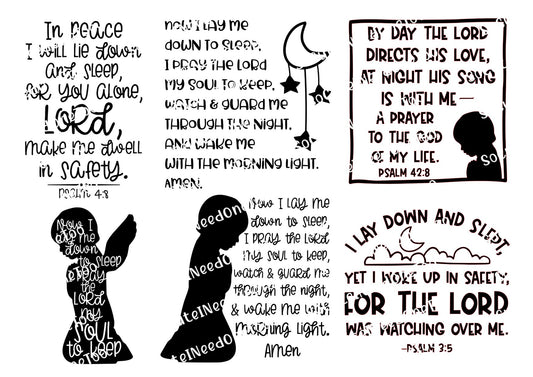 In peace
I will lie down
and sleep,
for you alone,
LORD,
make me dwell
in safety.
PSALM 4:8
NOW I LAY ME
DOWN TO SLEEP,
I PRAY THE LORD
MY SOUL TO KEEP,
WATCH & GUARD ME
THROUGH THE NIGHT,
AND WAKE ME
WITH THE MORNING LIGHT.
AMEN.
BY DAY THE LORD
DIRECTS HIS LOVE,
AT NIGHT HIS SONG
IS WITH ME—
A PRAYER
TO THE GOD
OF MY LIFE.
PSALM 42:8
Now I
lay me
down
to sleep
I pray
the
Lord
my
SOUL
to keep
Now I lay me
down to sleep,
I pray the Lord
my soul to keep,
watch & guard me
through the night,
& wake me with
morning light.
Amen
I LAY DOWN AND SLEPT,
YET I WOKE UP IN SAFETY,
FOR THE LORD
WAS WATCHING OVER ME.
-PSALM 3:5